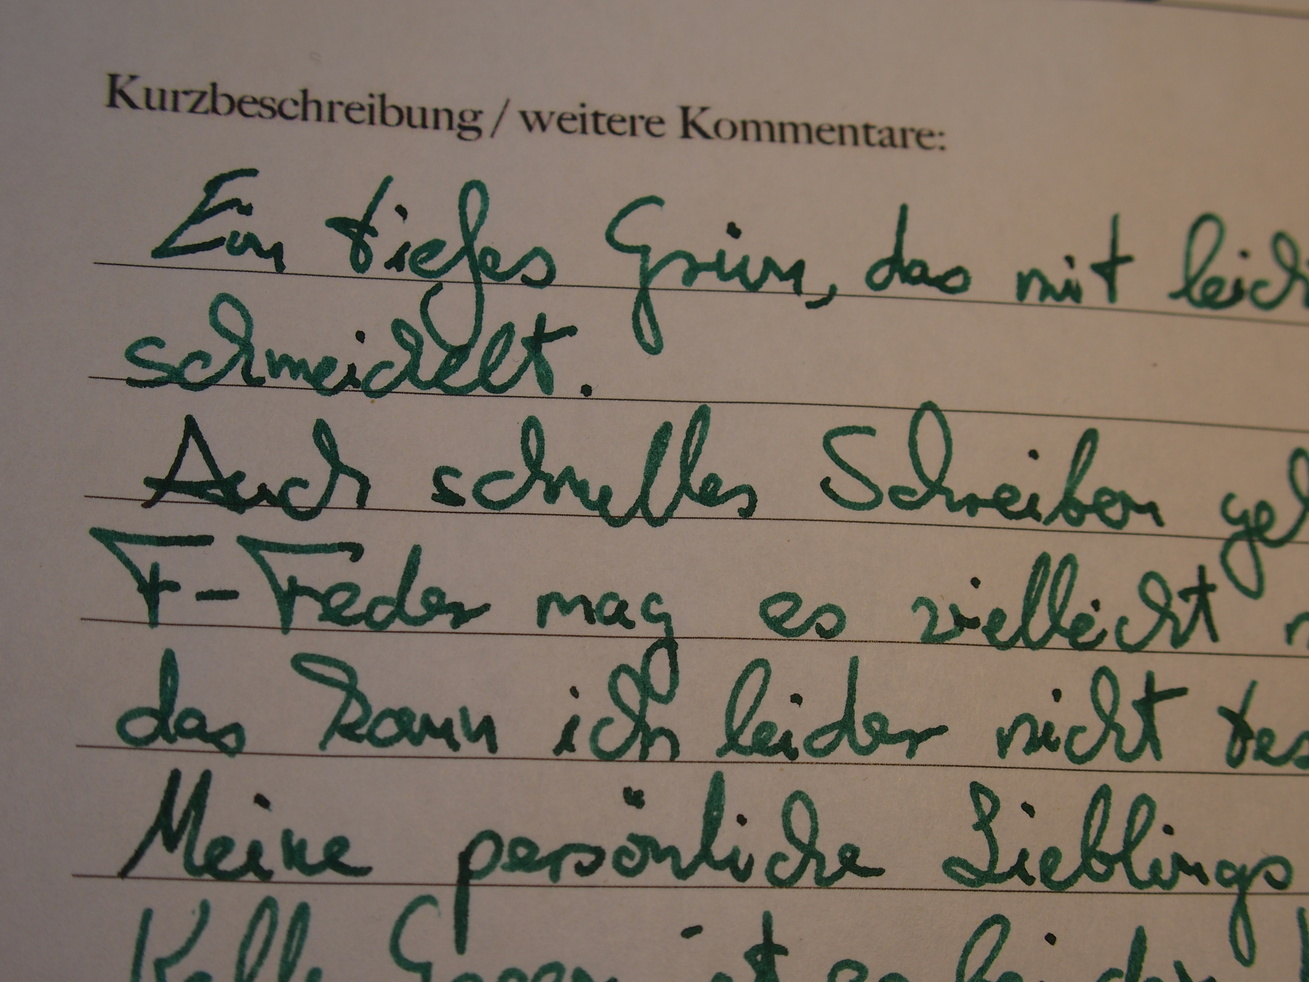 Kurzbeschreibung / weitere Kommentare:
Ein tiefes Grün, das mit leich
schmeichelt.
Auch schnelles Schreiben geh
F-Feder mag es vielleicht
das kann ich leider nicht tes
Meine persönliche Lieblings
ist es leider